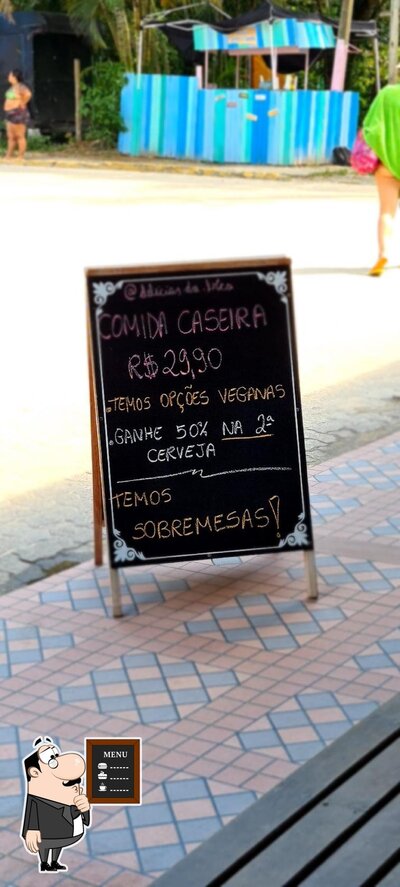 COMIDA CASEIRA
R$ 29,90
.TEMOS OPÇÕES VEGANAS
.GANHE 50% NA 2ª
CERVEJA
TEMOS
SOBREMESAS!
MENU